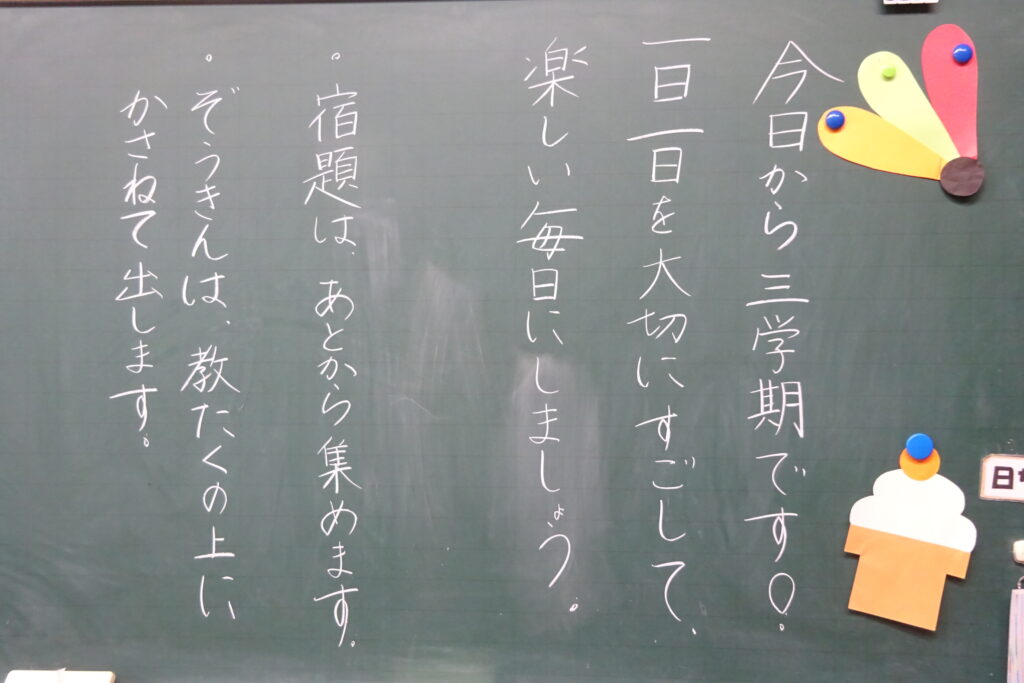 今日から三学期です!
一日一日を大切にすごして、
楽しい毎日にしましょう。
・宿題は、あとから集めます。
・ぞうきんは、教たくの上に
かさねて出します。
日